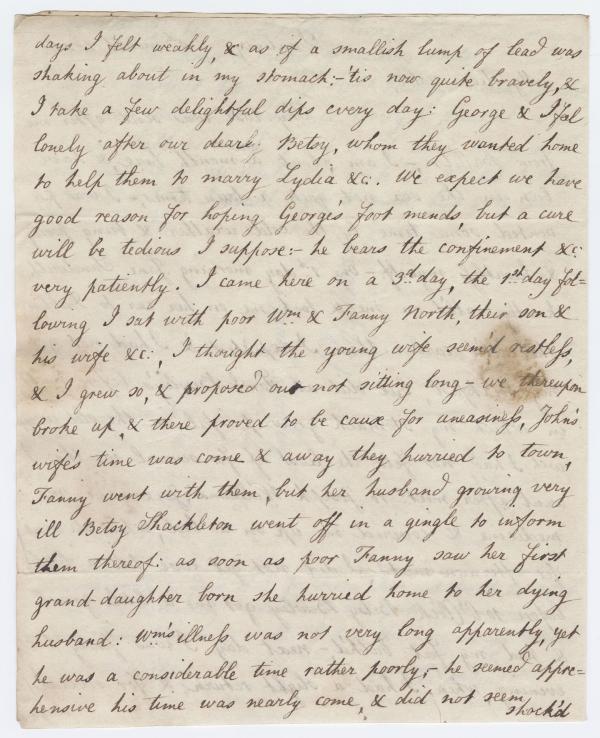 days I felt weakly, & as if a smallish lump of lead was
shaking about in my stomach:-'tis now quite bravely, &
I take a few delightful dips every day: George & I feel
lonely after our dear Betsy, whom they wanted home
to help them to marry Lydia &c: We expect we have
good reason for hoping George's foot mends, but a cure
will be tedious I suppose:- he bears the confinement &c:
very patiently. I came here on a 3d. day, the 1st. day fol=
lowing I sat with poor Wm. & Fanny North, their son &
his wife &c:, I thought the young wife seem'd restless,
& I grew so, & proposed our not sitting long - we thereupon
broke up, & there proved to be cause for uneasiness, John's
wife's time was come & away they hurried to town,
Fanny went with them, but her husband growing very
ill Betsy Shackleton went off in a gingle to inform
them thereof: as soon as poor Fanny saw her first
grand-daughter born she hurried home to her dying
husband: Wm's illness was not very long apparently, yet
he was a considerable time rather poorly,- he seemed appre=
hensive his time was nearly come, & did not seem
shock'd